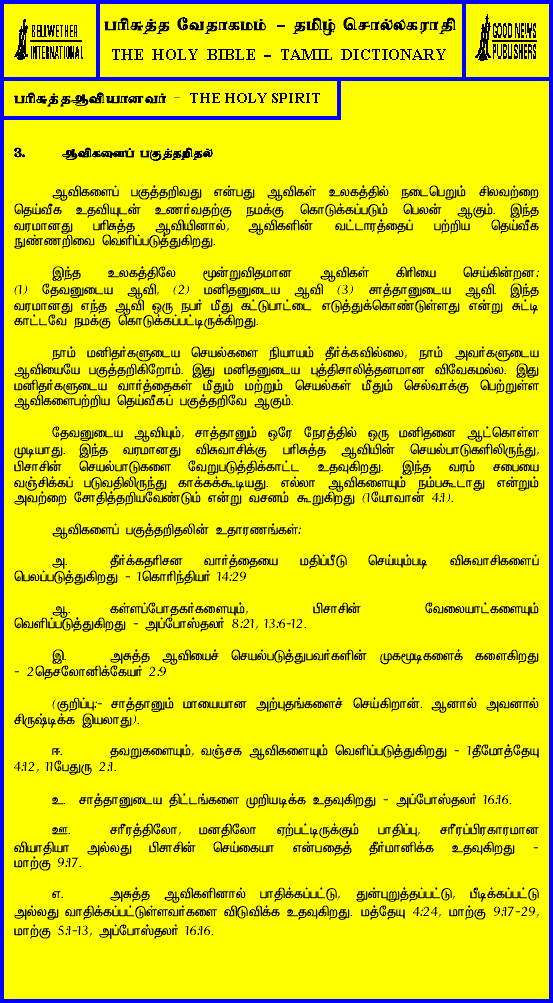 BELLWETHER
INTERNATIONAL
பரிசுத்த வேதாகமம் – தமிழ் சொல்லகராதி
THE HOLY BIBLE – TAMIL DICTIONARY
GOOD NEWS
PUBLISHERS
பரிசுத்தஆவியானவர் – THE HOLY SPIRIT
3. ஆவிகளைப் பகுத்தறிதல்
ஆவிகளைப் பகுத்தறிவது என்பது ஆவிகள் உலகத்தில் நடைபெறும் சிலவற்றை
தெய்வீக உதவியுடன் உணர்வதற்கு நமக்கு கொடுக்கப்படும் பெலன் ஆகும். இந்த
வரமானது பரிசுத்த ஆவியினால், ஆவிகளின் வட்டாரத்தைப் பற்றிய தெய்வீக
நுண்ணறிவை வெளிப்படுத்துகிறது.
இந்த உலகத்திலே மூன்றுவிதமான ஆவிகள் கிரியை செய்கின்றன:
(1) தேவனுடைய ஆவி, (2) மனிதனுடைய ஆவி (3) சாத்தானுடைய ஆவி. இந்த
வரமானது எந்த ஆவி ஒரு நபர் மீது கட்டுபாட்டை எடுத்துக்கொண்டுள்ளது என்று சுட்டி
காட்டவே நமக்கு கொடுக்கப்பட்டிருக்கிறது.
நாம் மனிதர்களுடைய செயல்களை நியாயம் தீர்க்கவில்லை, நாம் அவர்களுடைய
ஆவியையே பகுத்தறிகிறோம். இது மனிதனுடைய புத்திசாலித்தனமான விவேகமல்ல. இது
மனிதர்களுடைய வார்த்தைகள் மீதும் மற்றும் செயல்கள் மீதும் செல்வாக்கு பெற்றுள்ள
ஆவிகளைபற்றிய தெய்வீகப் பகுத்தறிவே ஆகும்.
தேவனுடைய ஆவியும், சாத்தானும் ஒரே நேரத்தில் ஒரு மனிதனை ஆட்கொள்ள
முடியாது. இந்த வரமானது விசுவாசிக்கு பரிசுத்த ஆவியின் செயல்பாடுகளிலிருந்து,
பிசாசின் செயல்பாடுகளை வேறுபடுத்திக்காட்ட உதவுகிறது. இந்த வரம் சபையை
வஞ்சிக்கப் படுவதிலிருந்து காக்கக்கூடியது. எல்லா ஆவிகளையும் நம்பகூடாது என்றும்
அவற்றை சோதித்தறியவேண்டும் என்று வசனம் கூறுகிறது (1யோவான் 4:1).
ஆவிகளைப் பகுத்தறிதலின் உதாரணங்கள்:
அ. தீர்க்கதரிசன வார்த்தையை மதிப்பீடு செய்யும்படி விசுவாசிகளைப்
பெலப்படுத்துகிறது - 1கொரிந்தியர் 14:29
ஆ. கள்ளப்போதகர்களையும், பிசாசின் வேலையாட்களையும்
வெளிப்படுத்துகிறது - அப்போஸ்தலர் 8:21, 13:6-12.
இ. அசுத்த ஆவியைச் செயல்படுத்துபவர்களின் முகமூடிகளைக் களைகிறது
- 2தெசலோனிக்கேயர் 2:9
(குறிப்பு:- சாத்தானும் மாயையான அற்புதங்களைச் செய்கிறான். ஆனால் அவனால்
சிருஷ்டிக்க இயலாது).
ஈ. தவறுகளையும், வஞ்சக ஆவிகளையும் வெளிப்படுத்துகிறது - 1தீமோத்தேயு
4:12, 11பேதுரு 2:1.
உ. சாத்தானுடைய திட்டங்களை முறியடிக்க உதவுகிறது - அப்போஸ்தலர் 16:16.
ஊ. சரீரத்திலோ, மனதிலோ ஏற்பட்டிருக்கும் பாதிப்பு, சரீரப்பிரகாரமான
வியாதியா அல்லது பிசாசின் செய்கையா என்பதைத் தீர்மானிக்க உதவுகிறது -
மாற்கு 9:17.
எ. அசுத்த ஆவிகளினால் பாதிக்கப்பட்டு, துன்புறுத்தப்பட்டு, பீடிக்கப்பட்டு
அல்லது வாதிக்கப்பட்டுள்ளவர்களை விடுவிக்க உதவுகிறது. மத்தேயு 4:24, மாற்கு 9:17-29,
மாற்கு 5:1-13, அப்போஸ்தலர் 16:16.